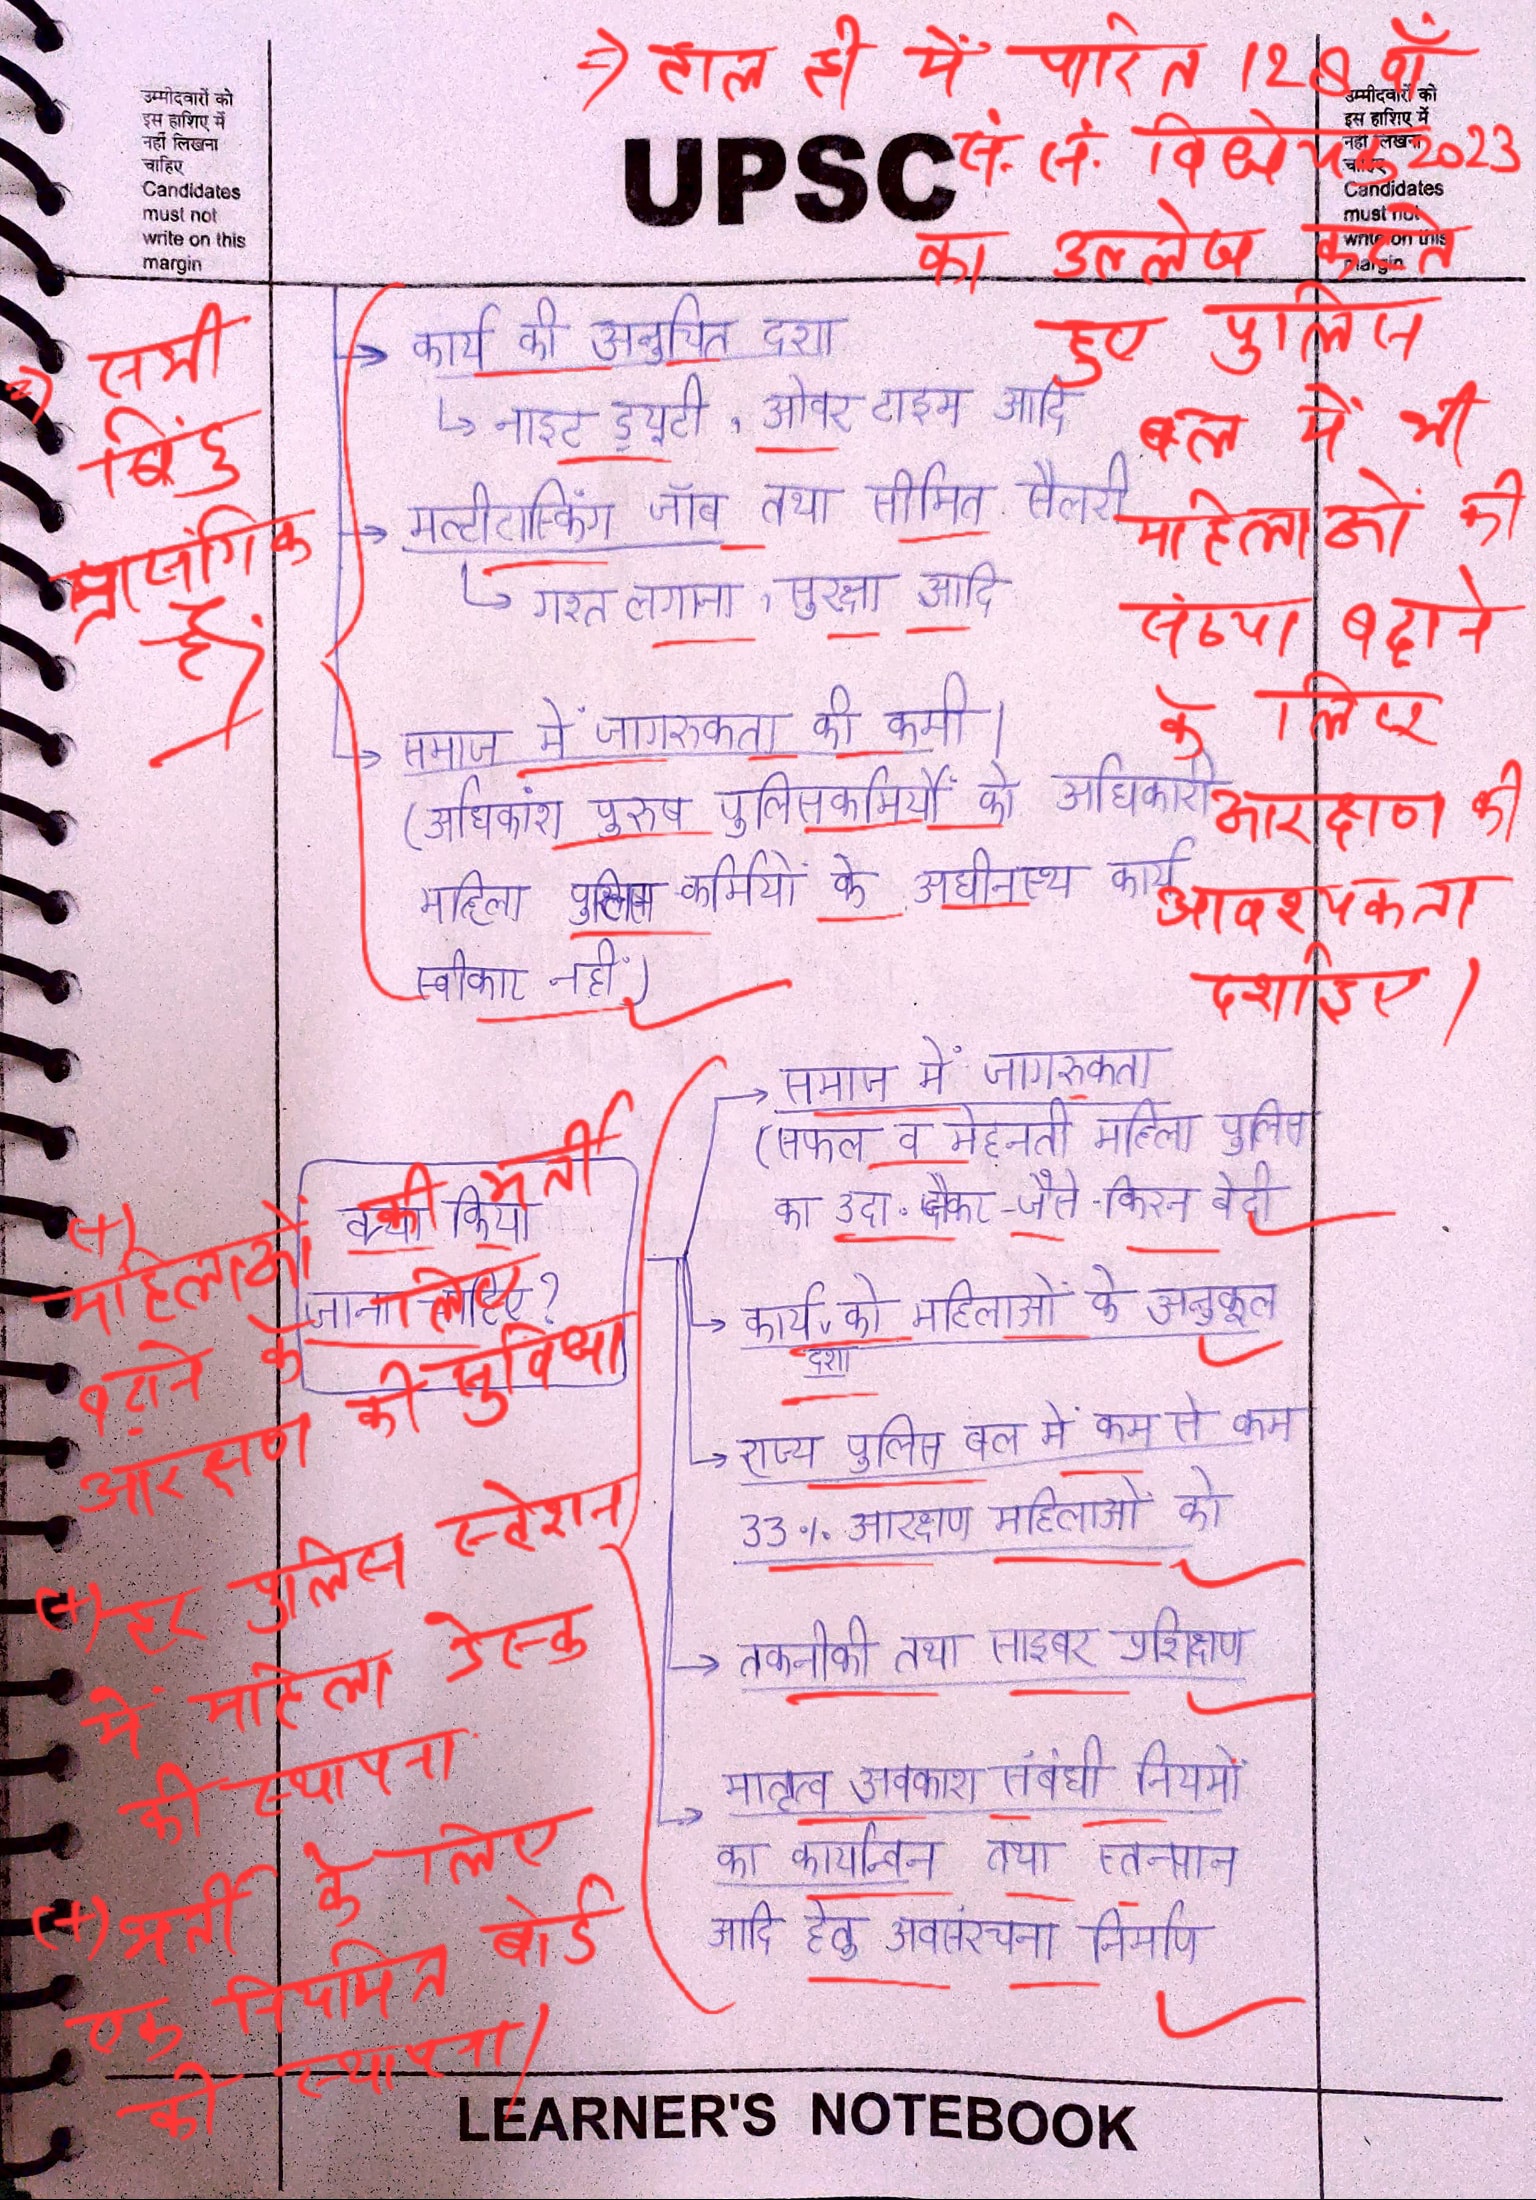 =) हाल ही में पारित 128 वाँ
सं. सं. विधेयक 2023
का उल्लेख करते
हुए पुलिस
बल में भी
महिलाओं की
संख्या बढ़ाने
के लिए
आरक्षण की
आवश्यकता
दर्शाइए।
उम्मीदवारों को
इस हाशिए में
नहीं लिखना
चाहिए
Candidates
must not
write on this
margin
UPSC
उम्मीदवारों को
इस हाशिए में
नहीं लिखना
चाहिए
Candidates
must not
write on this
margin
=) सभी
बिंदु
प्रासंगिक
हैं।
→ कार्य की अनुचित दशा
↳ नाइट ड्यूटी, ओवर टाइम आदि
→ मल्टीटास्किंग जॉब तथा सीमित सैलरी
↳ गश्त लगाना, सुरक्षा आदि
→ समाज में जागरुकता की कमी।
(अधिकांश पुरुष पुलिसकर्मियों को अधिकारी
महिला पुलिस कर्मियों के अधीनस्थ कार्य
स्वीकार नहीं)
क्या किया
जाना चाहिए?
→ समाज में जागरुकता
(सफल व मेहनती महिला पुलिस
का उदा. देकर -जैसे-किरन बेदी
→ कार्य को महिलाओं के अनुकूल
दशा
→ राज्य पुलिस बल में कम से कम
33% आरक्षण महिलाओं को
→ तकनीकी तथा साइबर प्रशिक्षण
→ मातृत्व अवकाश संबंधी नियमों
का कार्यान्विन तथा स्तनपान
आदि हेतु अवसंरचना निर्माण
(+) महिलाओं की भर्ती
बढ़ाने के लिए
आरक्षण की सुविधा
(+) हर पुलिस स्टेशन
में महिला डेस्क
की स्थापना
(+) भर्ती के लिए
एक नियमित बोर्ड
की स्थापना।
LEARNER'S NOTEBOOK